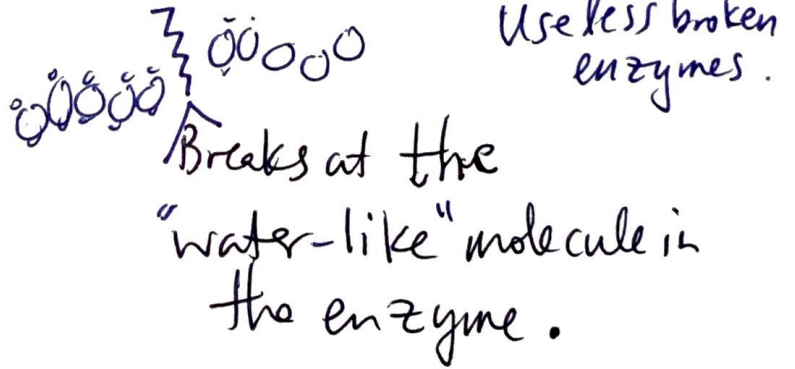 Useless broken
enzymes.
Breaks at the
"water-like" molecule in
the enzyme.